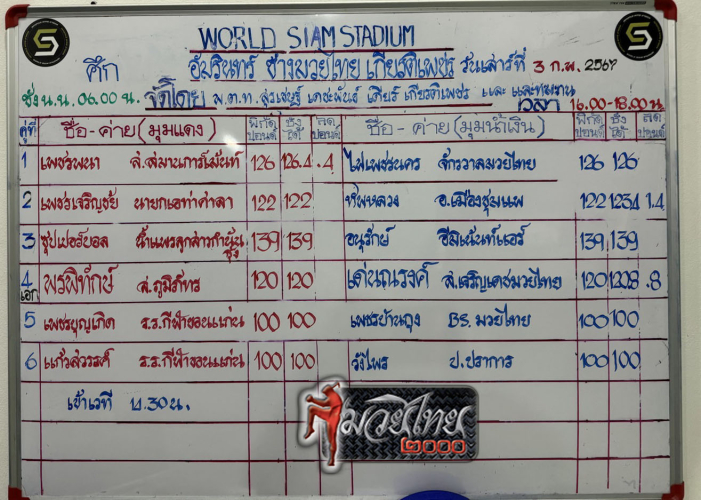 WORLD SIAM STADIUM
ศึก อัมรินทร์ ช้างมวยไทย เกียรติเพชร วันเสาร์ที่ 3 ก.พ. 2567
ชั่ง น.น. 06.00 น. จัดโดย พ.ต.ท. สุรเชษฐ์ เดชะพันธ์ เกียรติเพชร และ และทีมงาน เวลา 16.00-18.00 น.
คู่ที่ ชื่อ - ค่าย (มุมแดง) พิกัด ปอนด์ ชั่งได้ ลด ปอนด์ ชื่อ - ค่าย (มุมน้ำเงิน) พิกัด ปอนด์ ชั่งได้ ลด ปอนด์
1 เพชรพนา ส.สมานการ์เม้นท์ 126 126.4 .4 ไฟเพชรนคร จักรวาลมวยไทย 126 126
2 เพชรเจริญชัย นายกเอท่าศาลา 122 122 ทัพหลวง อ.เมืองชุมแพ 122 123.4 1.4
3 ซุปเปอร์บอล 139 139 อนุรักษ์ อีมิเน้นท์แอร์ 139 139
4 เอก พรพิทักษ์ ส.ภูมิภัทร 120 120 เด่นณรงค์ ส.เจริญเดชมวยไทย 120 120.8 .8
5 เพชรบุญเกิด ร.ร.กีฬาขอนแก่น 100 100 เพชรบ้านถุง BS. มวยไทย 100 100
6 แก้วสวรรค์ ร.ร.กีฬาขอนแก่น 100 100 วังไพร ป.ปราการ 100 100
เข้าเวที 14.30 น.
มวยไทย
๒๐๐๐